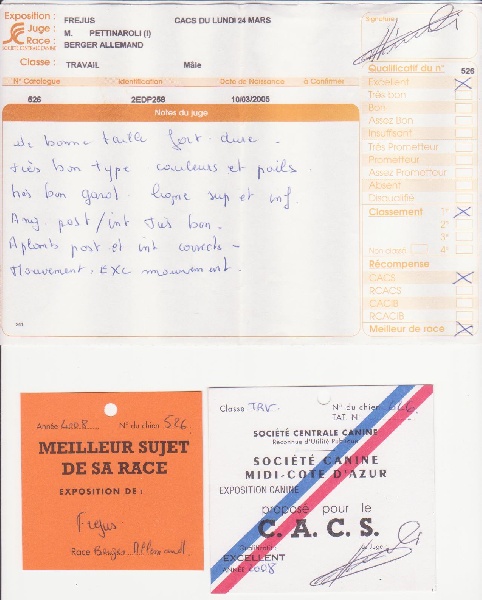 Exposition : FREJUS CACS DU LUNDI 24 MARS
Juge : M. PETTINAROLI (I)
Race : BERGER ALLEMAND
SOCIÉTÉ CENTRALE CANINE
Classe : TRAVAIL Mâle
N° Catalogue Identification Date de Naissance à Confirmer
526 2EDP258 10/03/2005
Notes du juge
de bonne taille fort
très bon type couleurs et poils.
très bon garot ligne sup et inf.
Ang post/int très bon.
Aplomb post et int corrects -
Mouvement. EXC mouvement.
Signature
Qualificatif du n° 526
Excellent
Très bon
Bon
Assez Bon
Insuffisant
Très Prometteur
Prometteur
Assez Prometteur
Absent
Disqualifié
Classement 1°
2°
3°
Non classé 4°
Récompense
CACS
RCACS
CACIB
RCACIB
Meilleur de race
Année 2008 N° du chien 526
MEILLEUR SUJET
DE SA RACE
EXPOSITION DE :
Frejus
Race Berger Allemand
Classe TRV N° du chien 526
TAT. N
SOCIÉTÉ CENTRALE CANINE
Reconnue d'Utilité Publique
SOCIÉTÉ CANINE
MIDI-COTE D'AZUR
EXPOSITION CANINE
propose pour le
C. A. C. S.
Qualificatif Le Juge,
EXCELLENT
ANNÉE 2008